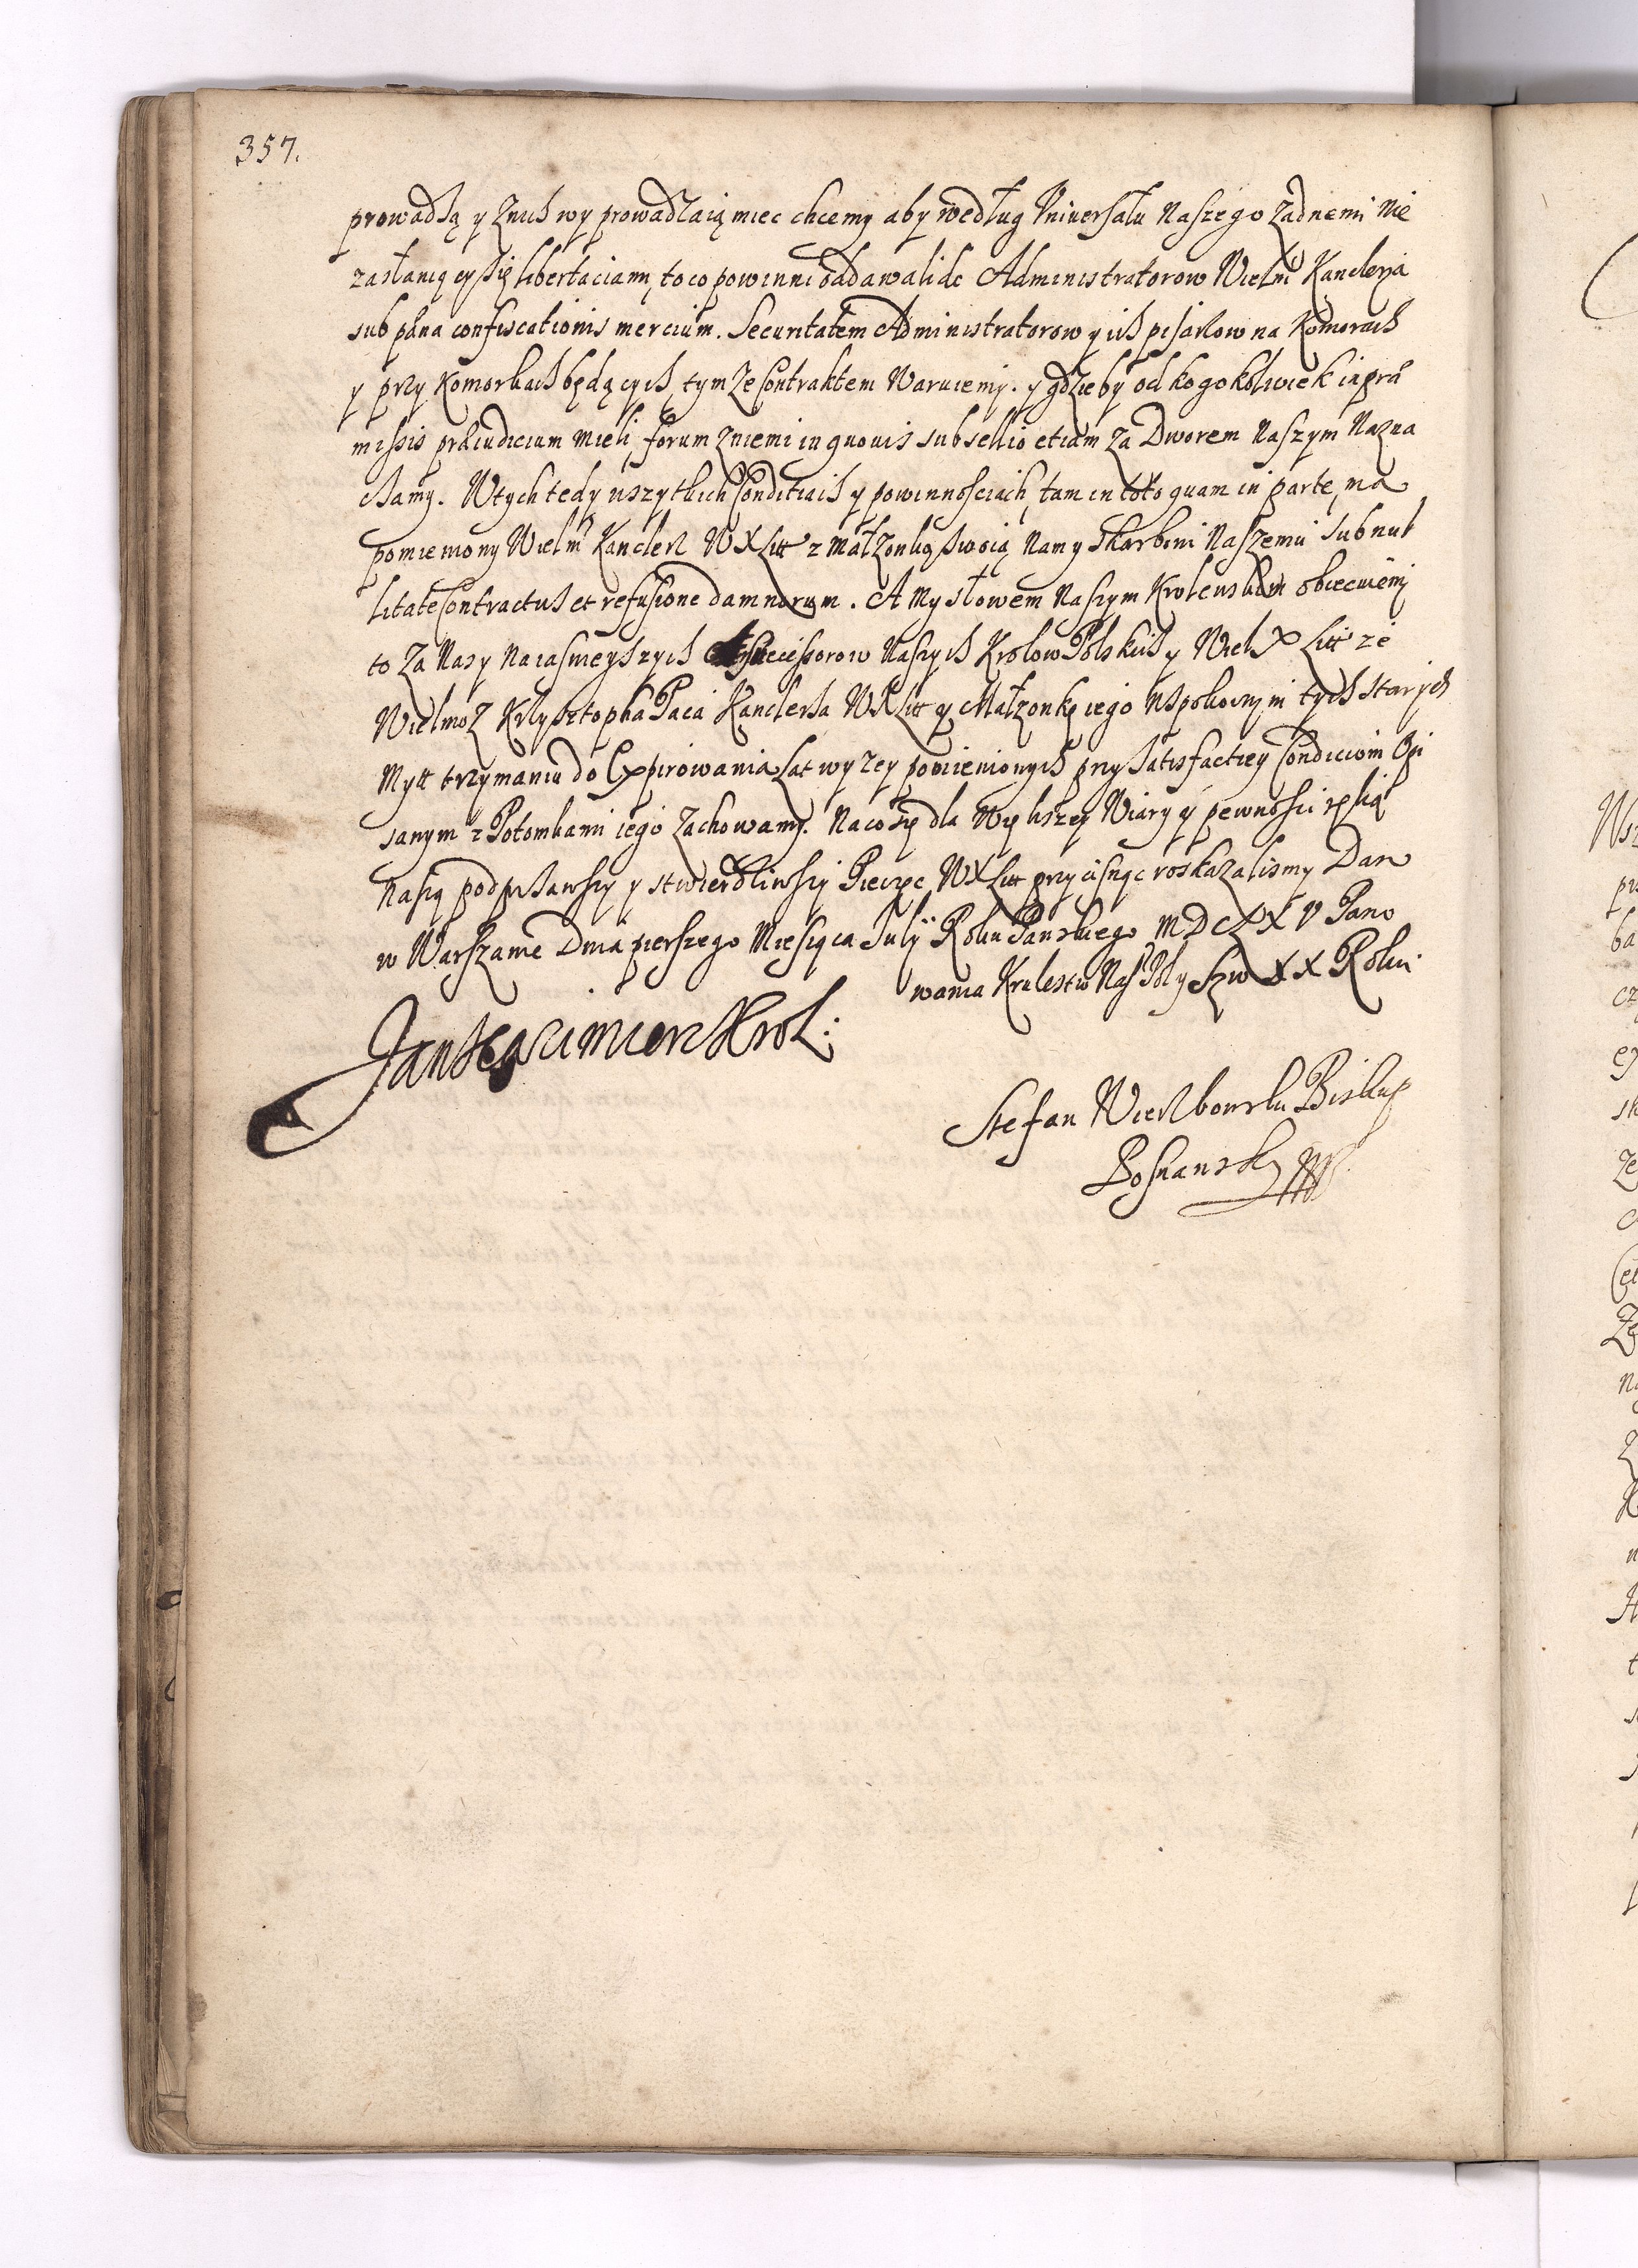 357.
prowadzą y znich wyprowadzaią miec chcemy aby według Vniuersału Naszego żadnemi nie
zasłaniąiąc się libertaciami, to co powinni oddawali do Administratorow Wielm Kanclerza
sub pæna confiscationis mercium. Securitatem Administratorow y ich pisarzow na Komorach
y przy Komorkach będących, tym ze Contraktem Waruiemy. y gdzieby od kogokolwiek in præ
missis præiudicium mieli, forum zniemi in quouis subsellio etiam za Dworem Naszym Nazna
czamy. W tych tedy wszytkich Conditiach y powinnosciach, tam in toto quam in parte, ma
pomieniony Wielm Kanclerz W X Litt z Małzonką swoią Nam y Skarbowi Naszemu sub nul
litate Contractus et refusione damnorum. A My słowem Naszym Krolewskim obiecuiemy
to za Nas y Naiasnieyszych Successorow Naszych Krolow Polskich y Wiel X Litt ze
Wielmoz Krzysztopha Paca Kanclerza W X Litt y Małzonkę iego W spokoinym tych starych
Mytt trzymaniu do Expirowania Lat wyzey pomienionych przy satisfactiey Condiciom Opi
sanym z Potomkami iego zachowamy. Na co się dla Większey Wiary y pewnosci ręką
Naszą podpisawszy y stwierdziwszy Pieczęc W X Litt przycisnąc roskazalismy Dan
w Warszawie Dnia pierszego Miesiąca Julÿ Roku Panskiego MDCLXV Pano
wania Krolestw Nasz Pol y Szw XX Roku.
Jan Kazimierz Krol:
Stefan Wierzbowski Biskup
Posnansky mp